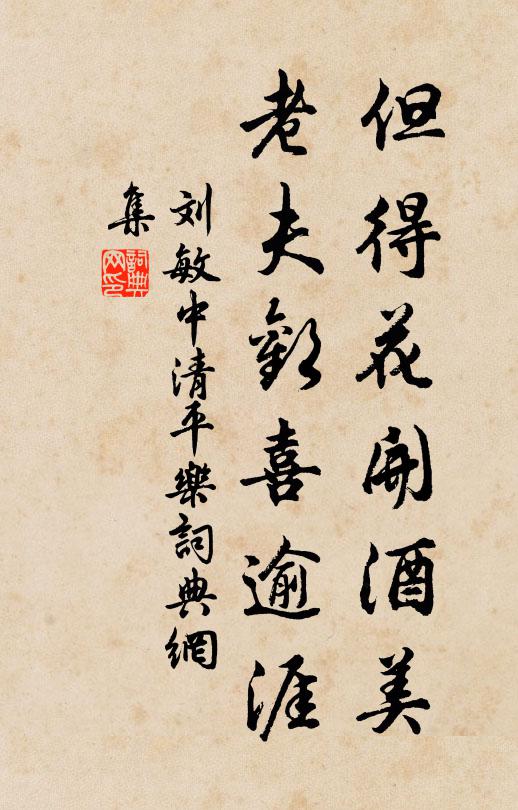 但得花开酒美
老夫歡喜逾涯
刘敏中清平樂詞典網
集
詞典
网印